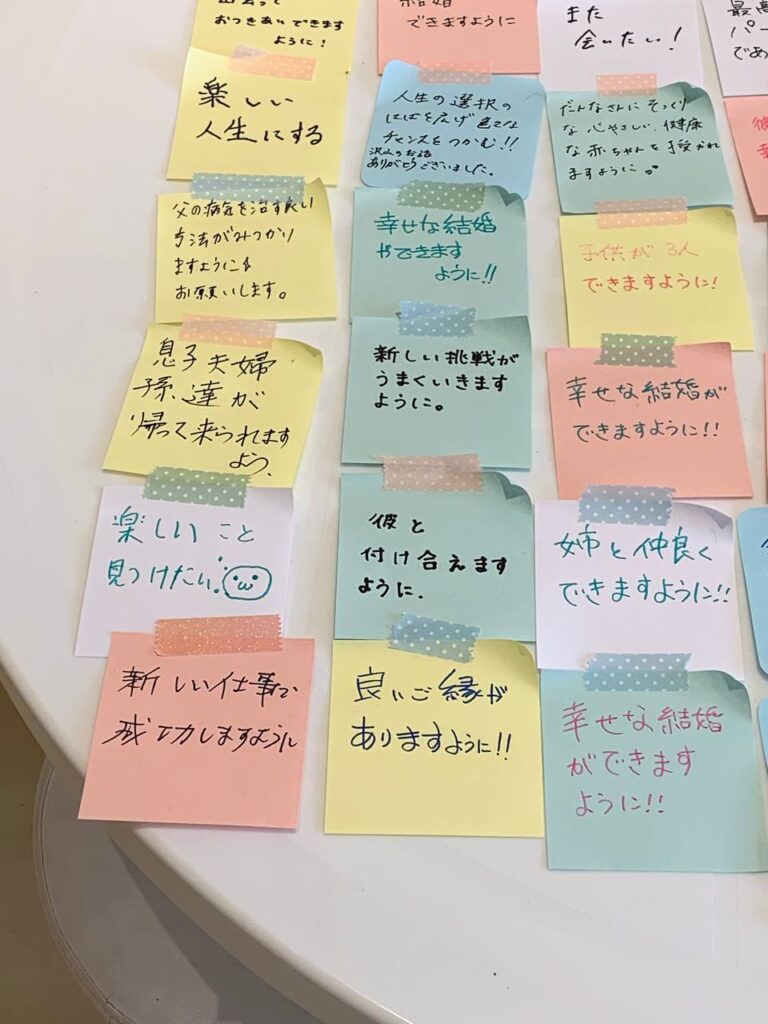 おつきあいできます
ように！
楽しい
人生にする
父の病気を治す良い
方法がみつかり
ますように
お願いします。
息子夫婦
孫達が
帰って来られます
よう.
楽しいこと
見つけたい!
新しい仕事で
成功しますように
結婚
できますように
人生の選択の
はばを広げ色々な
チャンスをつかむ!!
沢山のお話
ありがとうございました。
幸せな結婚
ができます
ように!!
新しい挑戦が
うまくいきます
ように。
彼と
付け合えます
ように.
良いご縁が
ありますように!!
また
会いたい!
だんなさんにそっくり
な心やさしい、健康
な赤ちゃんを授かれ
ますように。
子供が3人
できますように!
幸せな結婚が
できますように!!
姉と仲良く
できますように!!
幸せな結婚
ができます
ように!!
最高
パー
であ